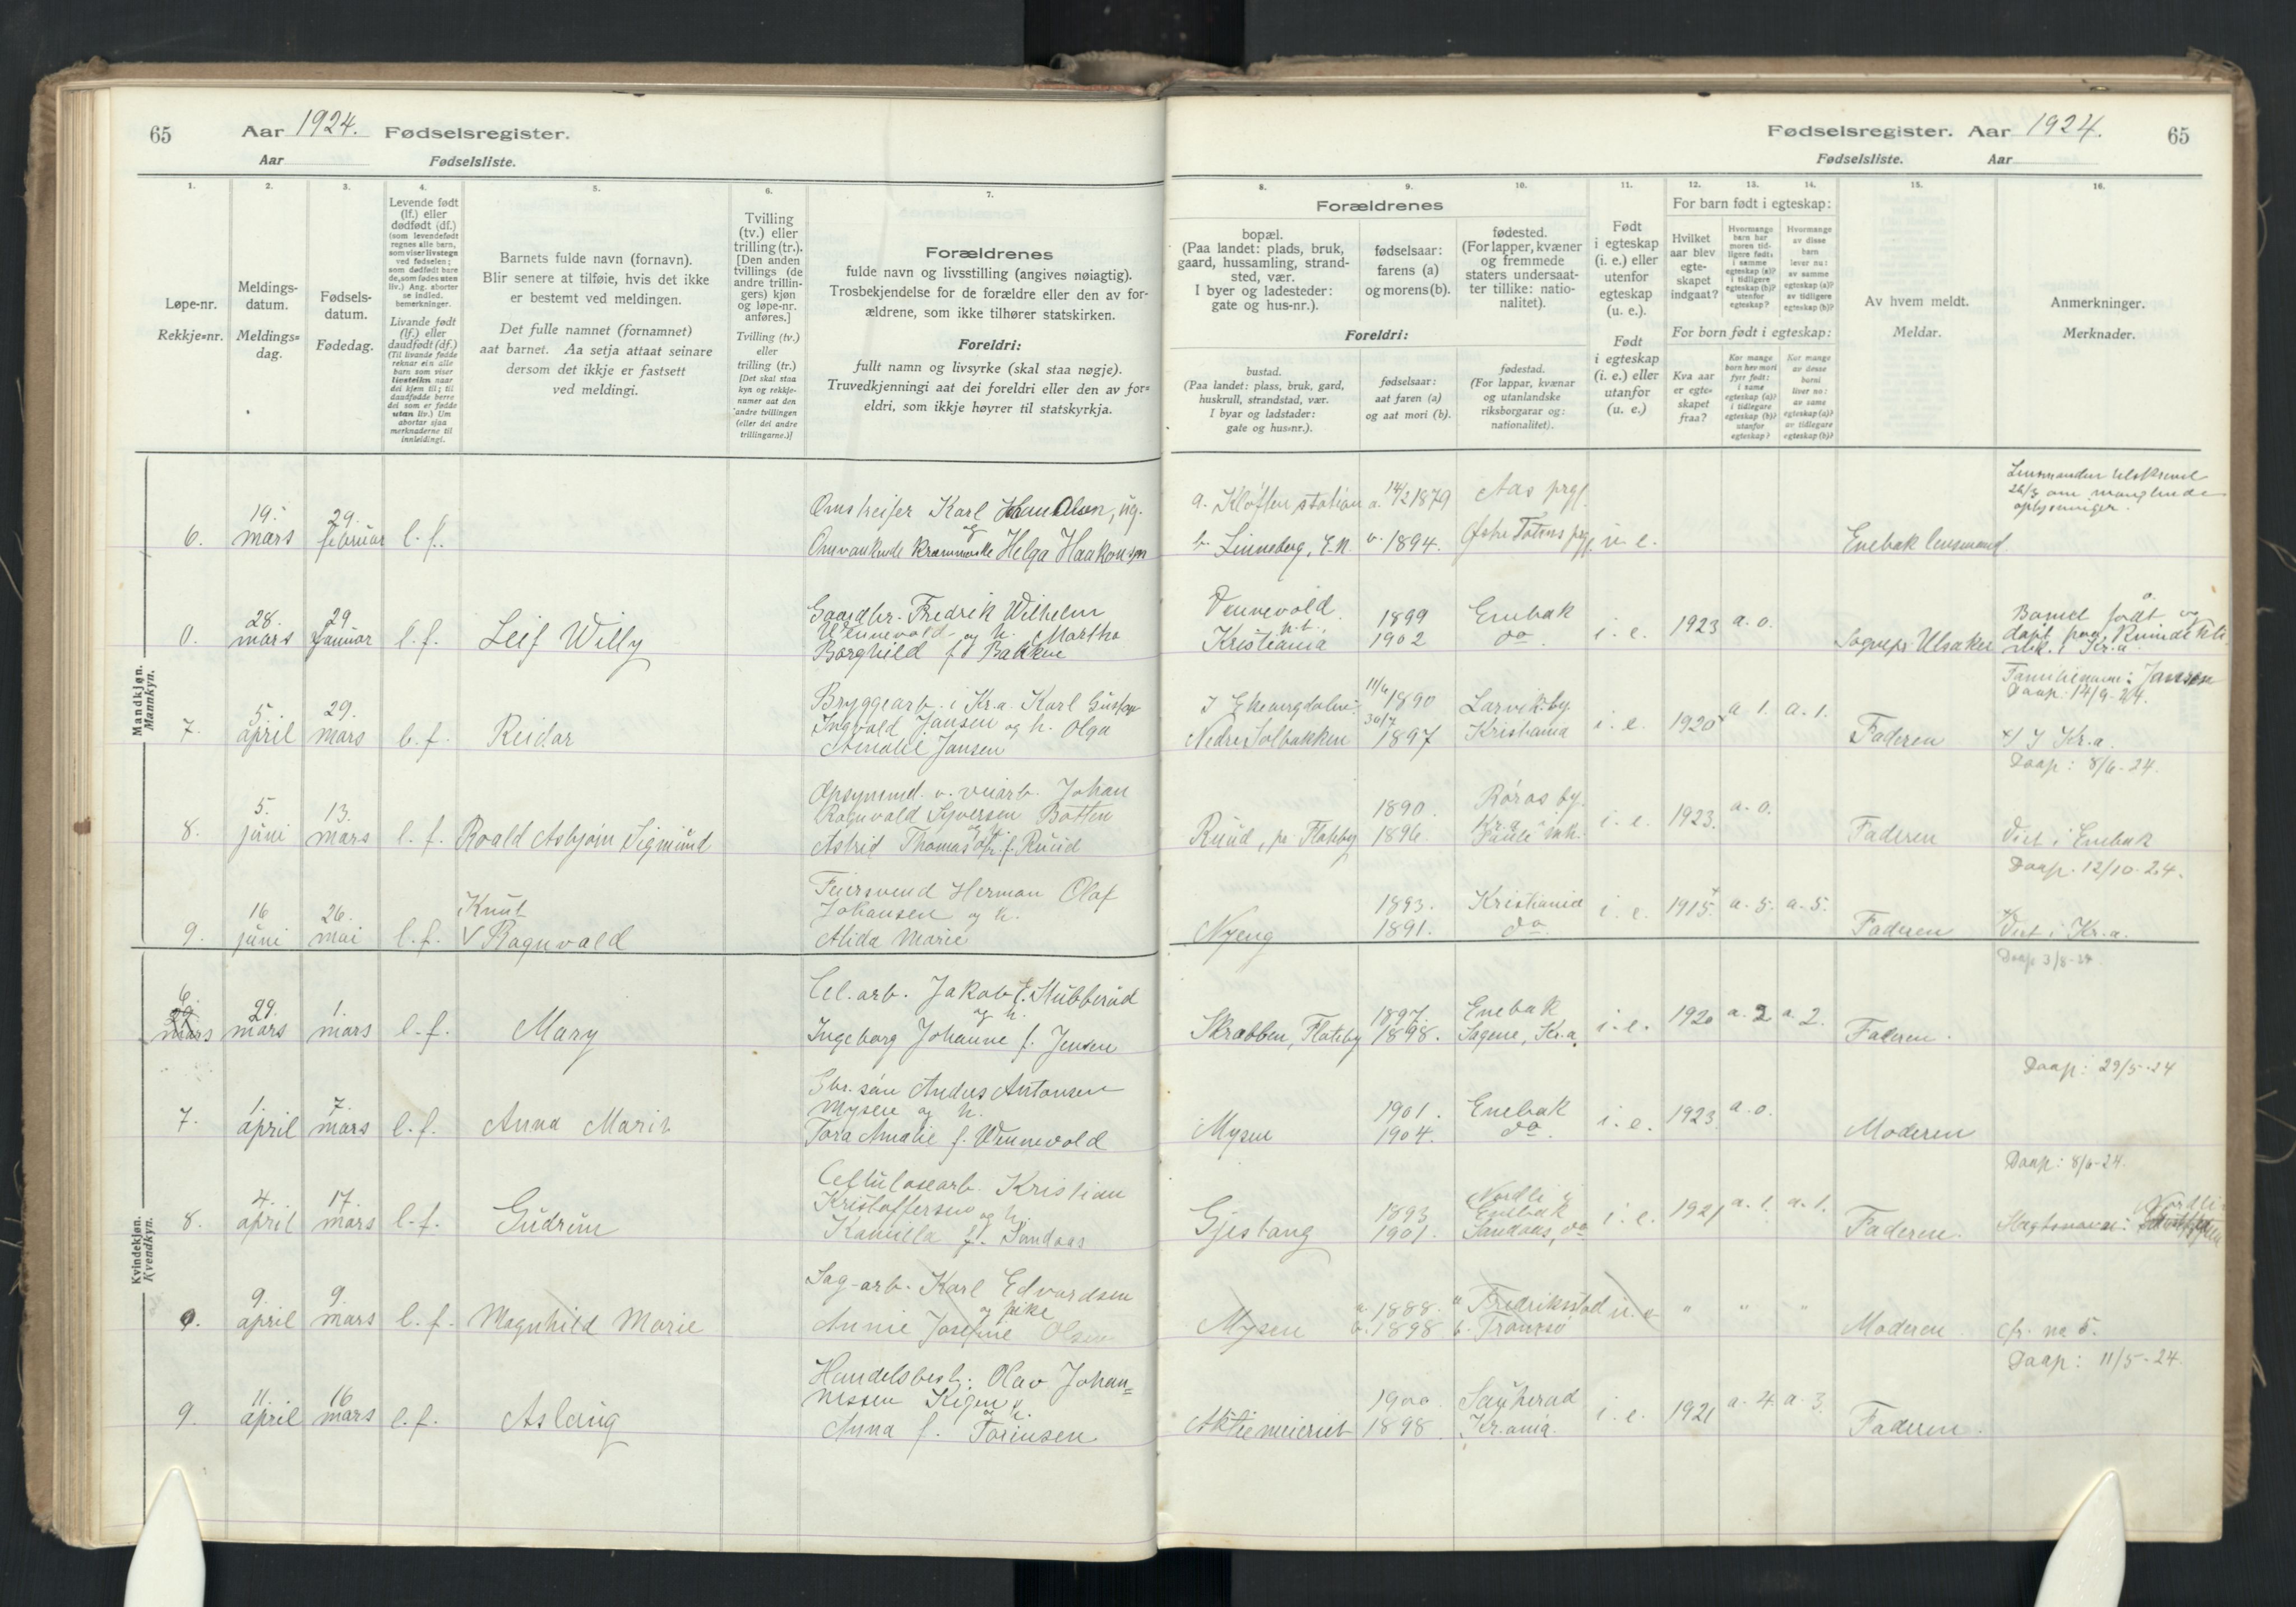 65
Aar 1924. Fødselsregister.
Aar
Fødselsliste.
1.
Løpe-nr.
Rekkje=nr.
2.
Meldings-
datum.
Meldings=
dag.
3.
Fødsels-
datum.
Fødedag.
4.
Levende født
(lf.) eller
dødfødt (df.)
(som levendefødt
regnes alle barn,
som viser livstegn
ved fødselen;
som dødfødt bare
de, som fødes uten
liv.) Ang. aborter
se indled.
bemerkninger.
Livande født
(lf.) eller
daudfødt (df.)
(Til livande fødde
reknar ein alle
barn som viser
livsteikn naar
dei kjem til; til
daudfødde berre
dei som er fødde
utan liv.) Um
abortar sjaa
merknaderne til
innleidingi.
5.
Barnets fulde navn (fornavn).
Blir senere at tilføie, hvis det ikke
er bestemt ved meldingen.
Det fulle namnet (fornamnet)
aat barnet. Aa setja attaat seinare
dersom det ikkje er fastsett
ved meldingi.
6.
Tvilling
(tv.) eller
trilling (tr.).
[Den anden
tvillings (de
andre trillin-
gers) kjøn
og løpe-nr.
anføres.]
Tvilling (tv.)
eller
trilling (tr.)
[Det skal staa
kyn og rekkje-
numer aat den
andre tvillingen
(eller dei andre
trillingarne.)]
7.
Forældrenes
fulde navn og livsstilling (angives nøiagtig).
Trosbekjendelse for de forældre eller den av for-
ældrene, som ikke tilhører statskirken.
Foreldri:
fullt namn og livsyrke (skal staa nøgje).
Truvedkjenningi aat dei foreldri eller den av for=
eldri, som ikkje høyrer til statskyrkja.
Mandkjøn.
Mannkyn.
6.
19.
mars
29.
februar
l.f.
Omstreifer Karl Johan Olsen, ug.
og
Omvankende Helga Haakonsen
0.
28.
mars
29
januar
l.f.
Leif Willy
Gaardbr. Fredrik Wilhelm
Wennevold og h. Martha
Borghild f. Bakkue
7.
5.
april
29.
mars
l.f.
Reidar
Bryggearb. i Kr.a. Karl Gustav
Ingvald Jansen og h. Olga
Amalie Jansen
8.
5.
juni
13.
mars
l.f.
Roald Asbjørn Sigmund
Opsynsmd. v. veiarb. Johan
Ragnvald Syversen Botten
og h.
Astrid f. Ruud
9.
16
juni
26.
mai
l.f.
Knut
V Ragnvald
Feiersvend Herman Olaf
Johansen og h.
Alida Marie
Kvindekjøn.
Kvendkyn.
6.
mars
29.
mars
1.
mars
l.f.
Mary
Cel. arb. Jakob E. Stubberud
og h.
Ingeborg Johanne f. Jensen
7.
1.
april
7.
mars
l.f.
Anna Marie
Gbr. søn Anders Antonsen
Mysen og h.
Tora Amalie f. Wennevold
8.
4.
april
17.
mars
l.f.
Gudrun
Cellulosearb. Kristian
Kristoffersen og h.
Kamilla f. Sandaas
0.
9.
april
9.
mars
l.f.
Magnhild Marie
Sag-arb. Karl Edvardsen
og pike
Annie Josefine Olsen
9.
11.
april
16
mars
l.f.
Aslaug
Handelsbest. Olav Johan=
nessen Kigen
og h.
Anna f. Torinsen
Fødselsregister. Aar 1924.
65
Fødselsliste.
Aar
Forældrenes
8.
bopæl.
(Paa landet: plads, bruk,
gaard, hussamling, strand-
sted, vær.
I byer og ladesteder:
gate og hus-nr.).
9.
fødselsaar:
farens (a)
og morens (b).
10.
fødested.
(For lapper, kvæner
og fremmede
staters undersaat-
ter tillike: natio-
nalitet).
Foreldri:
bustad.
(Paa landet: plass, bruk, gard,
huskrull, strandstad, vær.
I byar og ladstader:
gate og hus=nr.).
fødselsaar:
aat faren (a)
og aat mori (b).
fødestad.
(For lappar, kvænar
og utanlandske
riksborgarar og:
nationalitet).
11.
Født
i egteskap
(i. e.) eller
utenfor
egteskap
(u. e.).
Født
i egteskap
(i. e.) eller
utanfor
(u. e.)
For barn født i egteskap:
12.
Hvilket
aar blev
egte-
skapet
indgaat?
13.
Hvormange
barn har
moren tid-
ligere født:
i samme
egteskap (a)?
i tidligere
egteskap (b)?
utenfor
egteskap?
14.
Hvormange
av disse
barn
lever nu:
av samme
egteskap (a)?
av tidligere
egteskap (b)?
For born født i egteskap:
Kva aar
er egte-
skapet
fraa?
Kor mange
born hev mori
fyrr født:
i same
egteskap (a)?
i tidlegare
egteskap (b)?
utanfor
egteskap?
Kor mange
av desse
borni
liver no:
av same
egteskap (a)?
av tidlegare
egteskap (b)?
15.
Av hvem meldt.
Meldar.
16.
Anmerkninger.
Merknader.
a. Kløften station
b. Linneberg, E.N.
a. 14/2 1879
b. 1894.
Aas prgj.
Østre Totens prgj.
u. e.
Enebak lensmand.
Lensmanden tilskrevet
26/3 om manglende
oplysninger.
Vennevold
p.t.
Kristiania
1899
1902
Enebak
do
i. e.
1923
a. 0.
Sognepr. Ulsaker
Barnet født og
døbt paa Kvindekli-
nik. i Kr.a.
I Ekebergdalen:
Nedre Solbakken
11/6 1890
30/7 1897
Larvik by.
Kristiania
i. e.
1920
a 1.
a. 1.
Faderen
Familienavn: Jansen
Daap: 14/9-24.
x) I Kr.a.
Ruud, pr. Flateby
1890.
1896.
Røros by.
Kr.a
i. e.
1923.
a. 0.
Faderen
Daap: 8/6-24.
Viet i Enebak
Nyeng
1893.
1891.
Kristiania
do.
i. e.
1915.
a. 5.
a. 5.
Faderen
Daap. 12/10-24.
Viet i Kr.a.
Skrabben, Flateby
1897.
1898.
Enebak
Sagene, Kr.a.
i. e.
1920
a. 2
a. 2.
Faderen.
Daap 3/8-24.
Mysen
1901.
1904.
Enebak
do.
i. e.
1923
a. 0.
Moderen
Daap: 29/5-24
Gjestang
1893
1901.
Nordli i
Enebak
Sandaas, do
i. e.
1921
a. 1.
a. 1.
Faderen.
Daap: 8/6-24.
Slegtsnavn: Nordli
Mysen
a. 1888.
b. 1898
a Fredriksstad
b. Tromsø
u. e
"
"
"
Moderen
cfr. no 5.
Aktiemeieriet
1900
1898
Sauherad
Kr.ania.
i. e.
1921
a. 4.
a. 3.
Faderen.
Daap: 11/5-24.